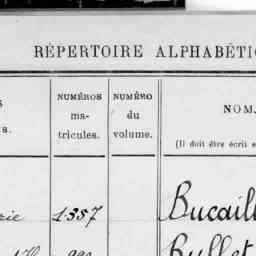 RÉPERTOIRE ALPHABÉTI
NUMÉROS
ma-
tricules.
NUMÉRO
du
volume.
NOM.
(Il doit être écrit e
s.
rie 1357 Bucaill
Bullet